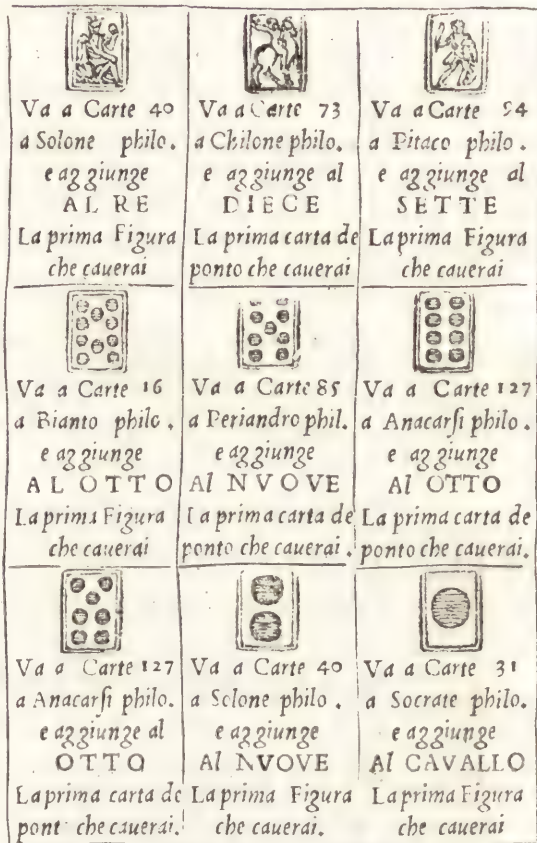 Va a Carte 40
a Solone philo.
e aggiunge
AL RE
La prima Figura
che cauerai
Va a Carte 73
a Chilone philo.
e aggiunge al
DIECE
La prima carta de
ponto che cauerai
Va a Carte 94
a Pitaco philo.
e aggiunge al
SETTE
La prima Figura
che cauerai
Va a Carte 16
a Bianto philo.
e aggiunge
AL OTTO
La prima Figura
che cauerai
Va a Carte 85
a Periandro phil.
e aggiunge
Al NVOVE
La prima carta de
ponto che cauerai.
Va a Carte 127
a Anacarſi philo.
e aggiunge
Al OTTO
La prima carta de
ponto che cauerai.
Va a Carte 127
a Anacarſi philo.
e aggiunge al
OTTO
La prima carta de
pont che cauerai.
Va a Carte 40
a Solone philo.
e aggiunge
Al NVOVE
La prima Figura
che cauerai.
Va a Carte 31
a Socrate philo.
e aggiunge
Al CAVALLO
La prima Figura
che cauerai